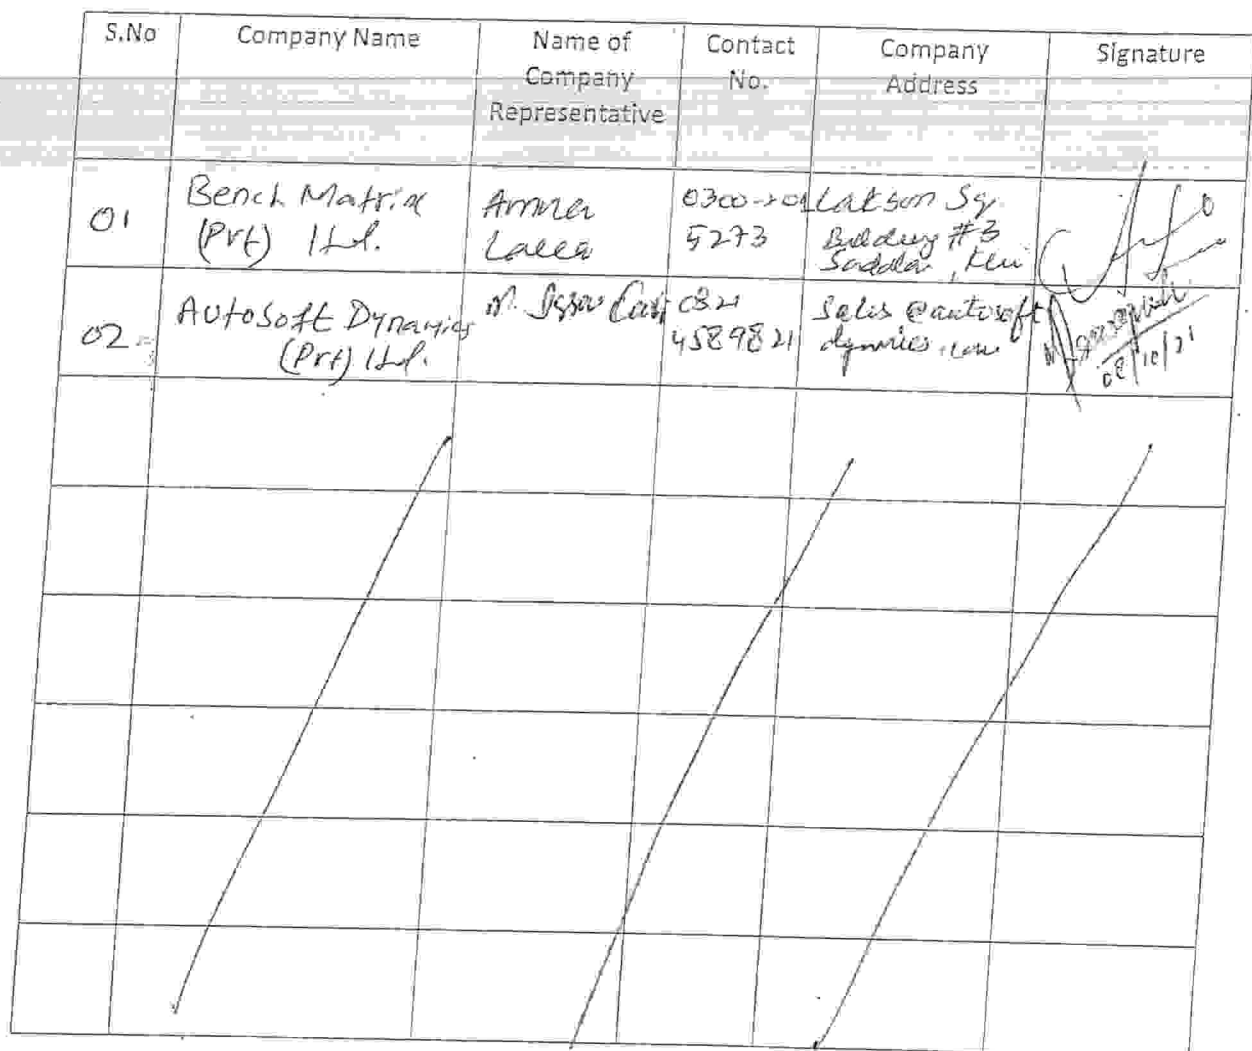 S.No
Company Name
Name of
Company
Representative
Contact
No.
Company
Address
Signature
01
Bench Matrix
(Prt) Ltd.
Amna
0300-201
5273
Lakson Sq.
Building #3
02
AutoSoft Dynamics
(Prt) Ltd.
M.
0321
4589821
Sales @ autosoft
dynamics.com
08/10/21